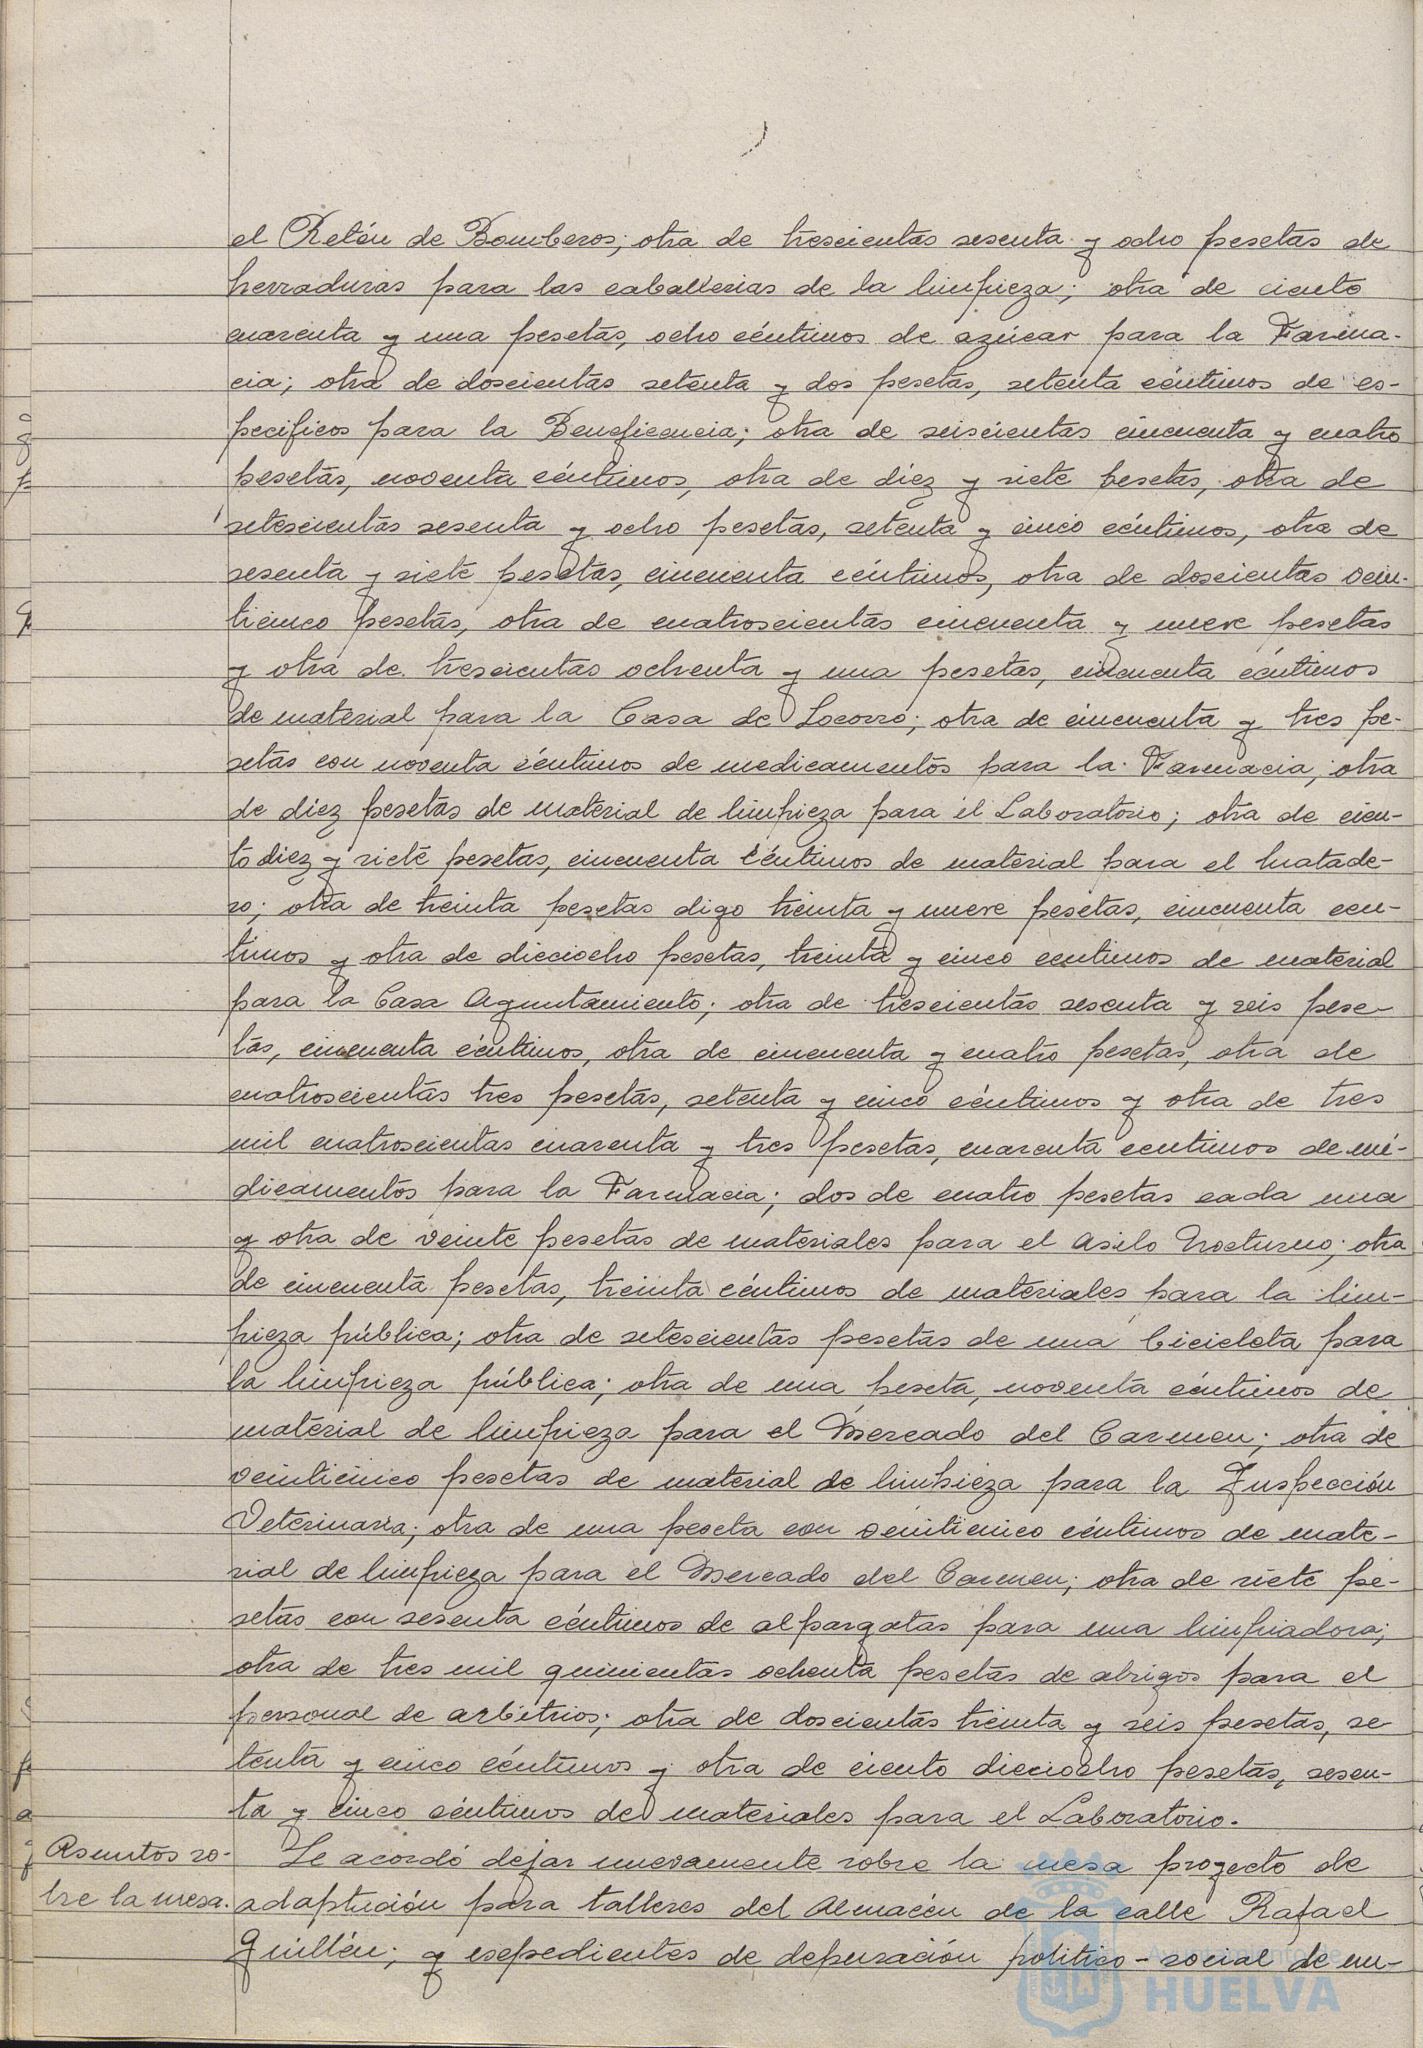 el Retén de Bomberos; otra de trescientas sesenta y ocho pesetas de
herraduras para las caballerias de la limpieza; otra de ciento
cuarenta y una pesetas, ocho céntimos de azúcar para la Farma-
cia; otra de doscientas setenta y dos pesetas, setenta céntimos de es-
pecificos para la Beneficencia; otra de seiscientas cincuenta y cuatro
pesetas, noventa céntimos, otra de diez y siete pesetas, otra de
setescientas sesenta y ocho pesetas, setenta y cinco céntimos, otra de
sesenta y siete pesetas, cincuenta céntimos, otra de doscientas vein-
ticinco pesetas, otra de cuatroscientas cincuenta y nueve pesetas
y otra de trescientas ochenta y una pesetas, cincuenta céntimos
de material para la Casa de Socorro; otra de cincuenta y tres pe-
setas con noventa céntimos de medicamentos para la Farmacia; otra
de diez pesetas de material de limpieza para el Laboratorio; otra de cien-
to diez y siete pesetas, cincuenta céntimos de material para el Matade-
ro; otra de treinta pesetas digo treinta y nueve pesetas, cincuenta cen-
timos y otra de dieciocho pesetas, treinta y cinco centimos de material
para la Casa Ayuntamiento; otra de trescientas sesenta y seis pese-
tas, cincuenta céntimos, otra de cincuenta y cuatro pesetas, otra de
cuatroscientas tres pesetas, setenta y cinco céntimos y otra de tres
mil cuatroscientas cuarenta y tres pesetas, cuarenta centimos de me-
dicamentos para la Farmacia; dos de cuatro pesetas cada una
y otra de veinte pesetas de materiales para el Asilo Nocturno; otra
de cincuenta pesetas, treinta céntimos de materiales para la lim-
pieza pública; otra de setescientas pesetas de una bicicleta para
la limpieza pública; otra de una peseta, noventa céntimos de
material de limpieza para el Mercado del Carmen; otra de
veinticinco pesetas de material de limpieza para la Inspección
Veterinaria; otra de una peseta con veinticinco céntimos de mate-
rial de limpieza para el Mercado del Carmen; otra de siete pe-
setas con sesenta céntimos de alpargatas para una limpiadora;
otra de tres mil quinientas ochenta pesetas de abrigos para el
personal de arbitrios; otra de doscientas treinta y seis pesetas, se
tenta y cinco céntimos y otra de ciento dieciocho pesetas, sesen-
ta y cinco céntimos de materiales para el Laboratorio.
Asuntos so- Se acordó dejar nuevamente sobre la mesa proyecto de
bre la mesa. adaptación para talleres del Almacén de la calle Rafael
Guillén; y esepedientes de depuración politico-social de em-
Ayuntamiento de
HUELVA